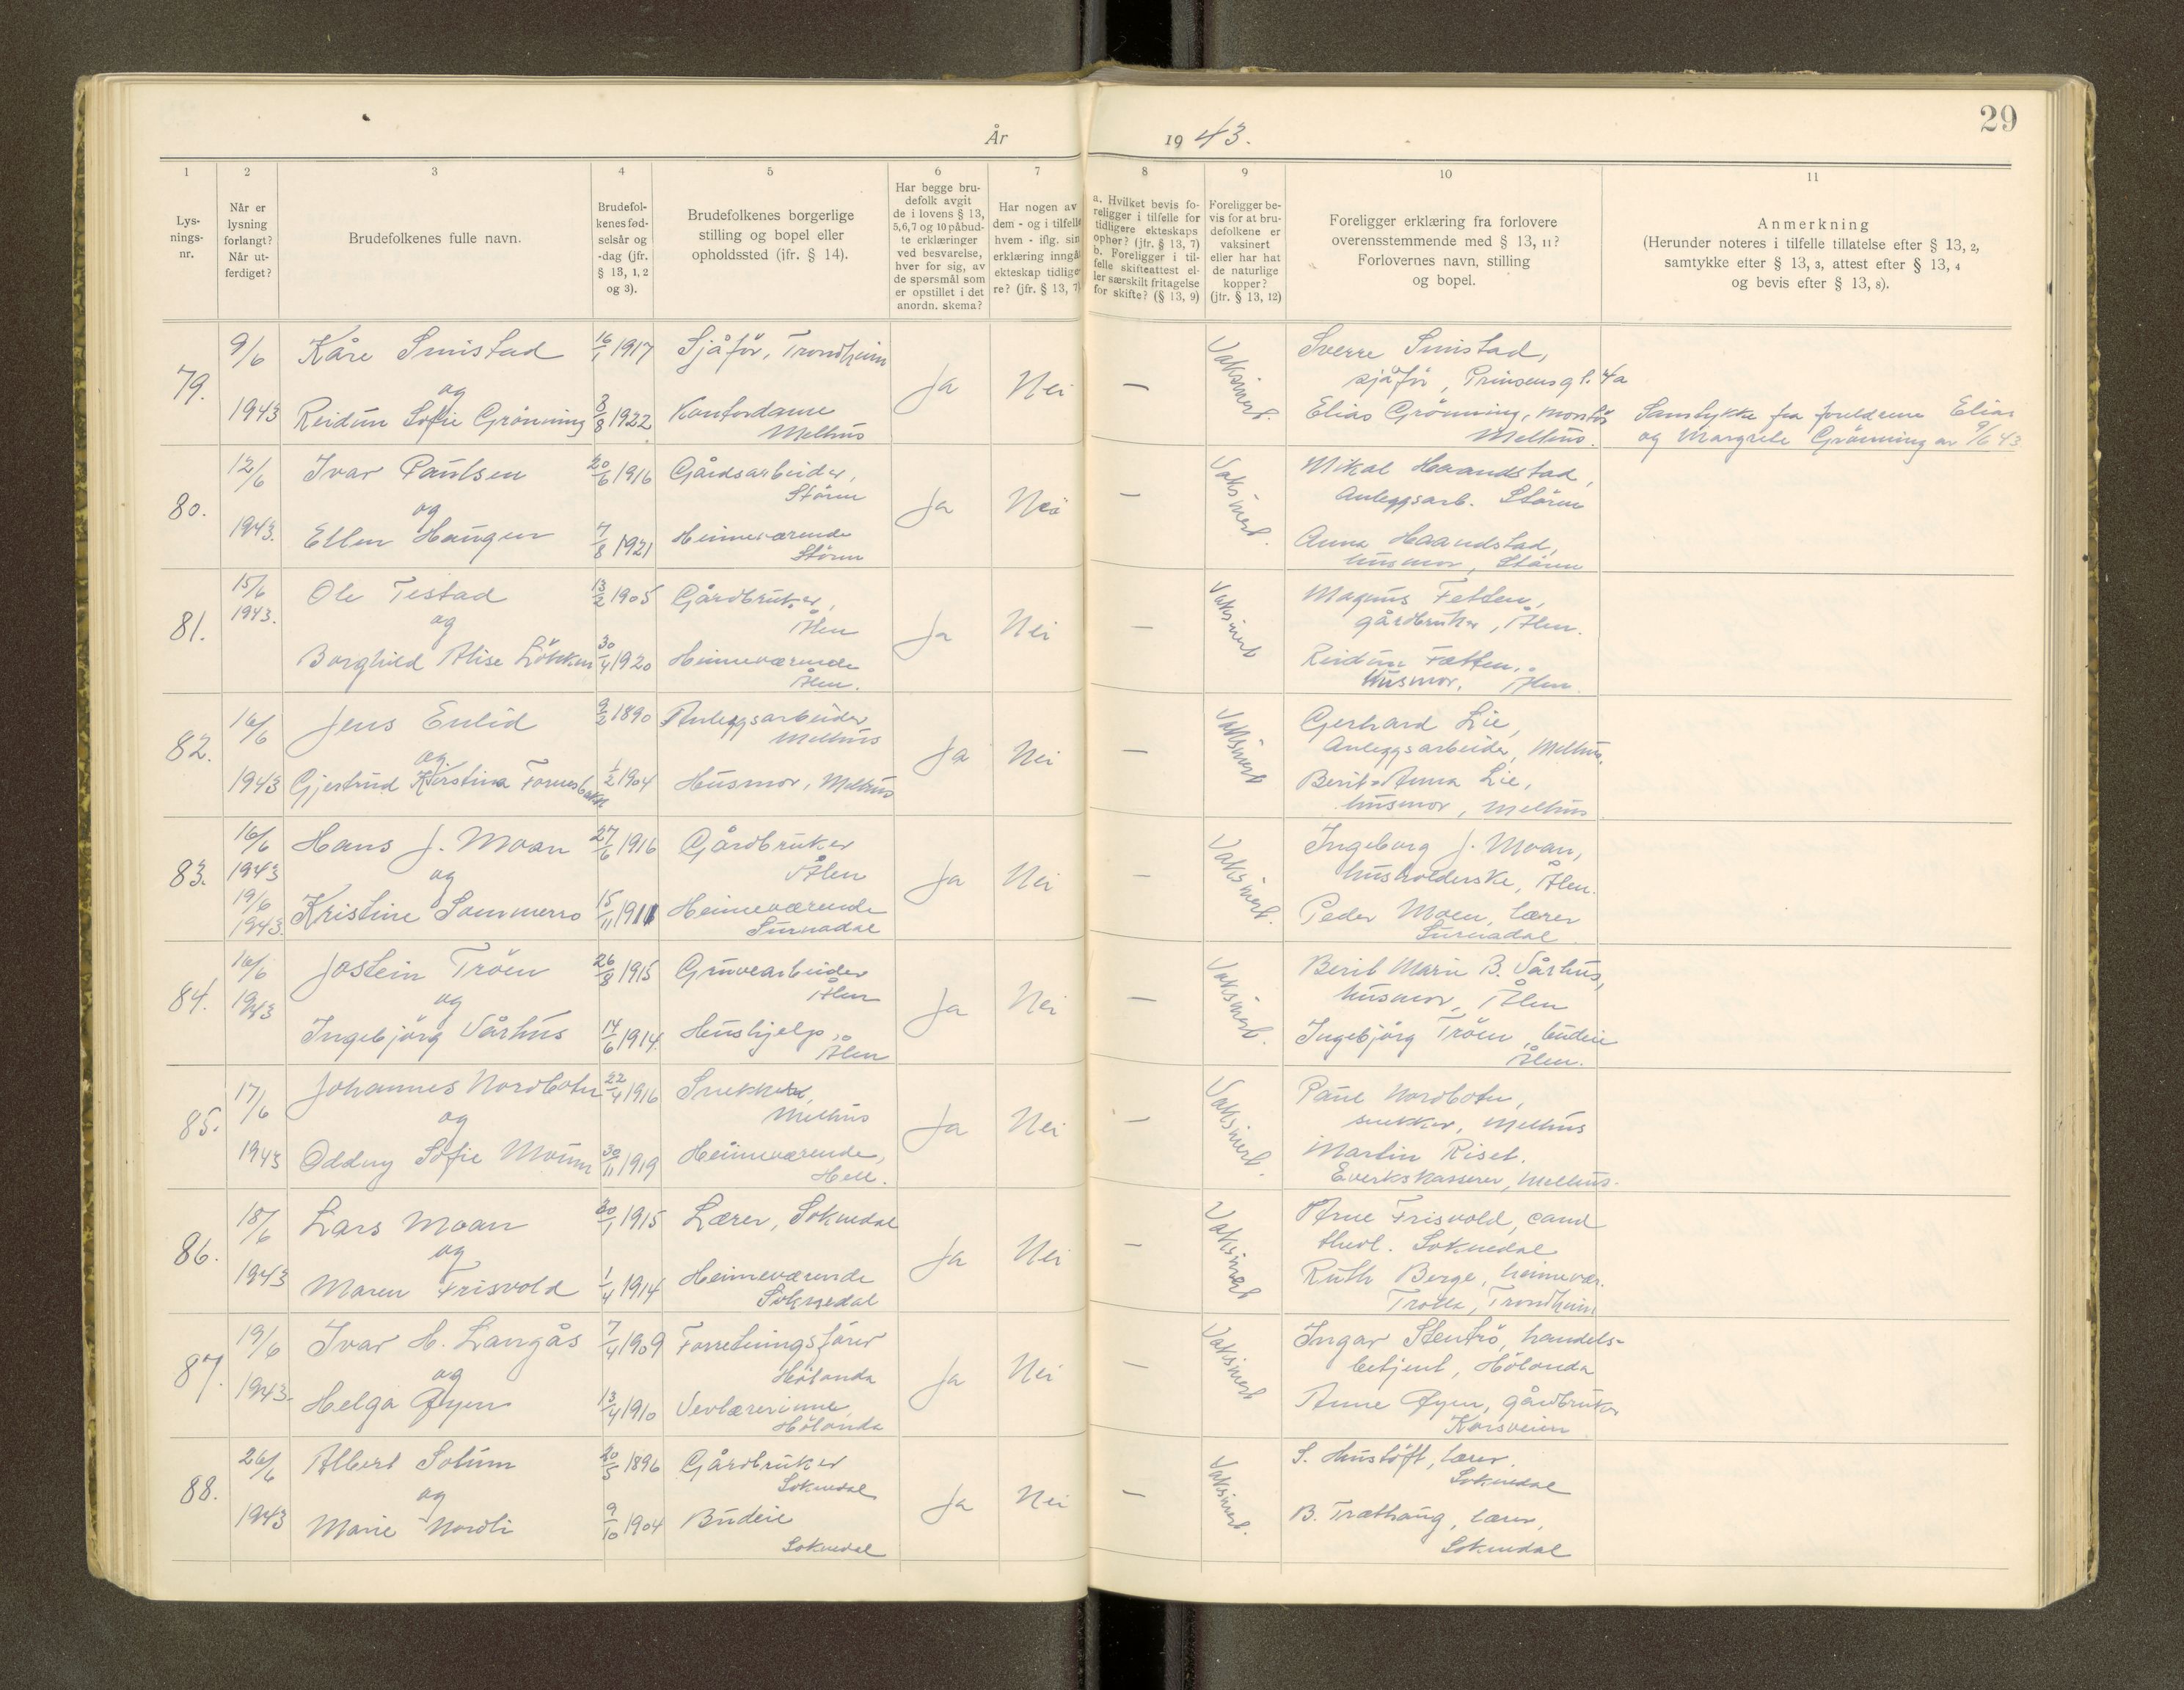 29
År 1943.
1 2 3 4 5 6 7 8 9 10 11
Lys-
nings-
nr.
Når er
lysning
forlangt?
Når ut-
ferdiget?
Brudefolkenes fulle navn.
Brudefol-
kenes fød-
selsår og
-dag (jfr.
§ 13, 1, 2
og 3).
Brudefolkenes borgerlige
stilling og bopel eller
opholdssted (jfr. § 14).
Har begge bru-
defolk avgit
de i lovens § 13,
5, 6, 7 og 10 påbud-
te erklæringer
ved besvarelse,
hver for sig, av
de spørsmål som
er opstillet i det
anordn. skema?
Har nogen av
dem - og i tilfelle
hvem - iflg. sin
erklæring inngå
ekteskap tidlige-
re? (jfr. § 13, 7)
a. Hvilket bevis fo-
religger i tilfelle for
tidligere ekteskaps
ophør? (jfr. § 13, 7)
b. Foreligger i til-
felle skifteattest el-
ler særskilt fritagelse
for skifte? (§ 13, 9)
Foreligger be-
vis for at bru-
defolkene er
vaksinert
eller har hat
de naturlige
kopper?
(jfr. § 13, 12)
Foreligger erklæring fra forlovere
overensstemmende med § 13, 11?
Forlovernes navn, stilling
og bopel.
Anmerkning
(Herunder noteres i tilfelle tillatelse efter § 13, 2,
samtykke efter § 13, 3, attest efter § 13, 4
og bevis efter § 13, 8).
79.
9/6
1943
Kåre Smistad
og
Reidun Sofie Grønning
16/1 1917
3/8 1922
Sjåfør, Trondheim
Kontordame
Melhus
Ja
Nei
—
Vaksinert.
Sverre Smistad,
sjåfør, Prinsensgt. 4a
Elias Grønning, montør
Melhus.
Samtykke fra foreldrene Elias
og Margrete Grønning av 9/6 43
80.
12/6
1943.
Ivar Paulsen
og
Ellen Haugen
20/6 1916
7/8 1921
Gårdsarbeider,
Støren
Heimeværende
Støren
Ja
Nei
—
Vaksinert.
Mikal Haandstad,
Anleggsarb. Støren
Anna Haandstad,
husmor, Støren
81.
15/6
1943.
Ole Testad
og
Borghild Alise Løkken
13/2 1905
30/4 1920
Gårdbruker,
Ålen
Heimeværende
Ålen.
Ja
Nei
—
Vaksinert
Magnus Fetten,
gårdbruker, Ålen.
Reidun Fætten,
Husmor, Ålen.
82.
16/6
1943
Jens Enlid
og
Gjertrud Kirstina Fornesbakk
9/2 1890
1/2 1904
Anleggsarbeider
Melhus
Husmor, Melhus
Ja
Nei
—
Vaksinert
Gerhard Lie,
Anleggsarbeider, Melhus.
Berit Anna Lie,
husmor, Melhus
83.
16/6
1943
19/6
1943.
Hans J. Moan
og
Kristine Sommerro
27/6 1916
15/11 1911
Gårdbruker
Ålen
Heimeværende
Surnadal
Ja
Nei
—
Vaksinert.
Ingeborg J. Moan,
husholderske, Ålen.
Peder Moen, lærer
Surnadal.
84.
16/6
1943
Jostein Trøen
og
Ingebjørg Vårhus
26/8 1915
14/6 1914.
Gruvearbeider
Ålen
Hushjelp,
Ålen
Ja
Nei
—
Vaksinert.
Berit Marie B. Vårhus,
husmor, Ålen
Ingebjørg Trøen, budeie
Ålen.
85.
17/6
1943
Johannes Nordboten
og
Oddny Sofie Moum
22/4 1916
30/11 1919
Snekker,
Melhus
Heimeværende,
Hell.
Ja
Nei
—
Vaksinert.
Paul Nordboten,
snekker, Melhus
Martin Riset.
Everkskasserer, Melhus.
86.
18/6
1943
Lars Moan
og
Maren Frisvold
30/1 1915
1/4 1914
Lærer, Soknedal
Heimeværende
Soknedal
Ja
Nei
—
Vaksinert
Arne Frisvold, cand
theol. Soknedal
Ruth Berge, heimevær.
Trolla, Trondheim
87.
19/6
1943.
Ivar H. Langås
og
Helga Øyen
7/4 1909
13/4 1910
Forretningsfører
Hølonda
Vevlærerinne,
Hølonda
Ja
Nei
—
Vaksinert
Ingar Stentrø, handels-
betjent, Hølonda
Anne Øyen, gårdbruker
Korsveien
88.
26/6
1943
Albert Solum
og
Marie Nordli
20/5 1896
9/10 1904
Gårdbruker
Soknedal
Budeie
Soknedal
Ja
Nei
—
Vaksinert.
S. Hustøft, lærer.
Soknedal
B. Træthaug, lærer,
Soknedal